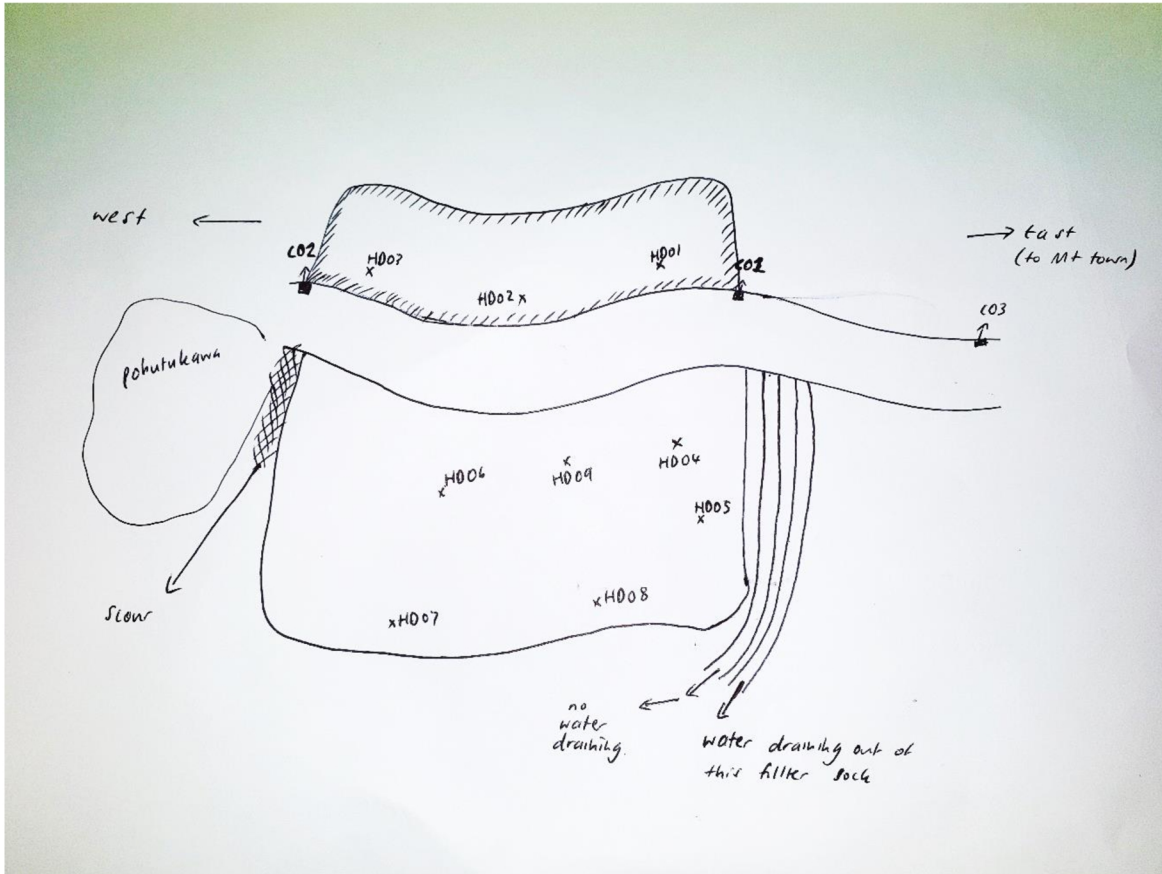 west
East
(to Mt town)
C02
HD03
HD01
C01
HD02
C03
pohutukawa
HD06
HD09
HD04
HD05
HD08
HD07
Scour
no
water
draining.
water draining out of
this filter sock